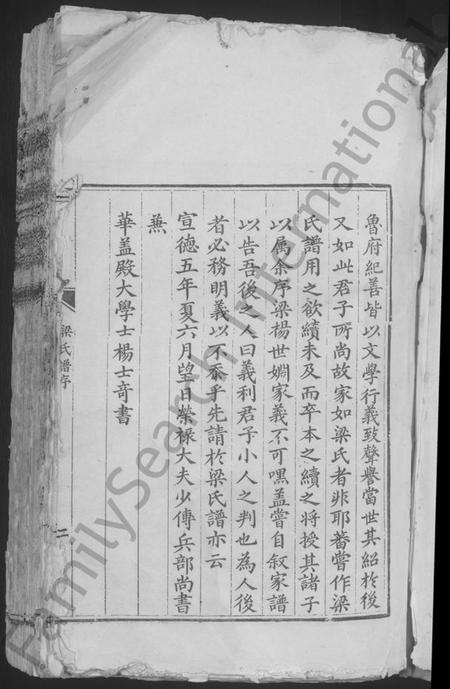 魯府紀善皆以文學行義致聲譽當世其紹於後
又如此君子所尚故家如梁氏者非耶蓄嘗作梁
氏譜用之欲續未及而卒本之續之將授其諸子
以属余序梁楊世婣家義不可嘿盖嘗自叙家譜
以告吾後之人曰義利君子小人之判也為人後
者必務明義以不忝乎先請於梁氏譜亦云
宣德五年夏六月望日榮禄大夫少傅兵部尚書
蕪
華盖殿大學士楊士竒書
梁氏譜序
二
FamilySearch International